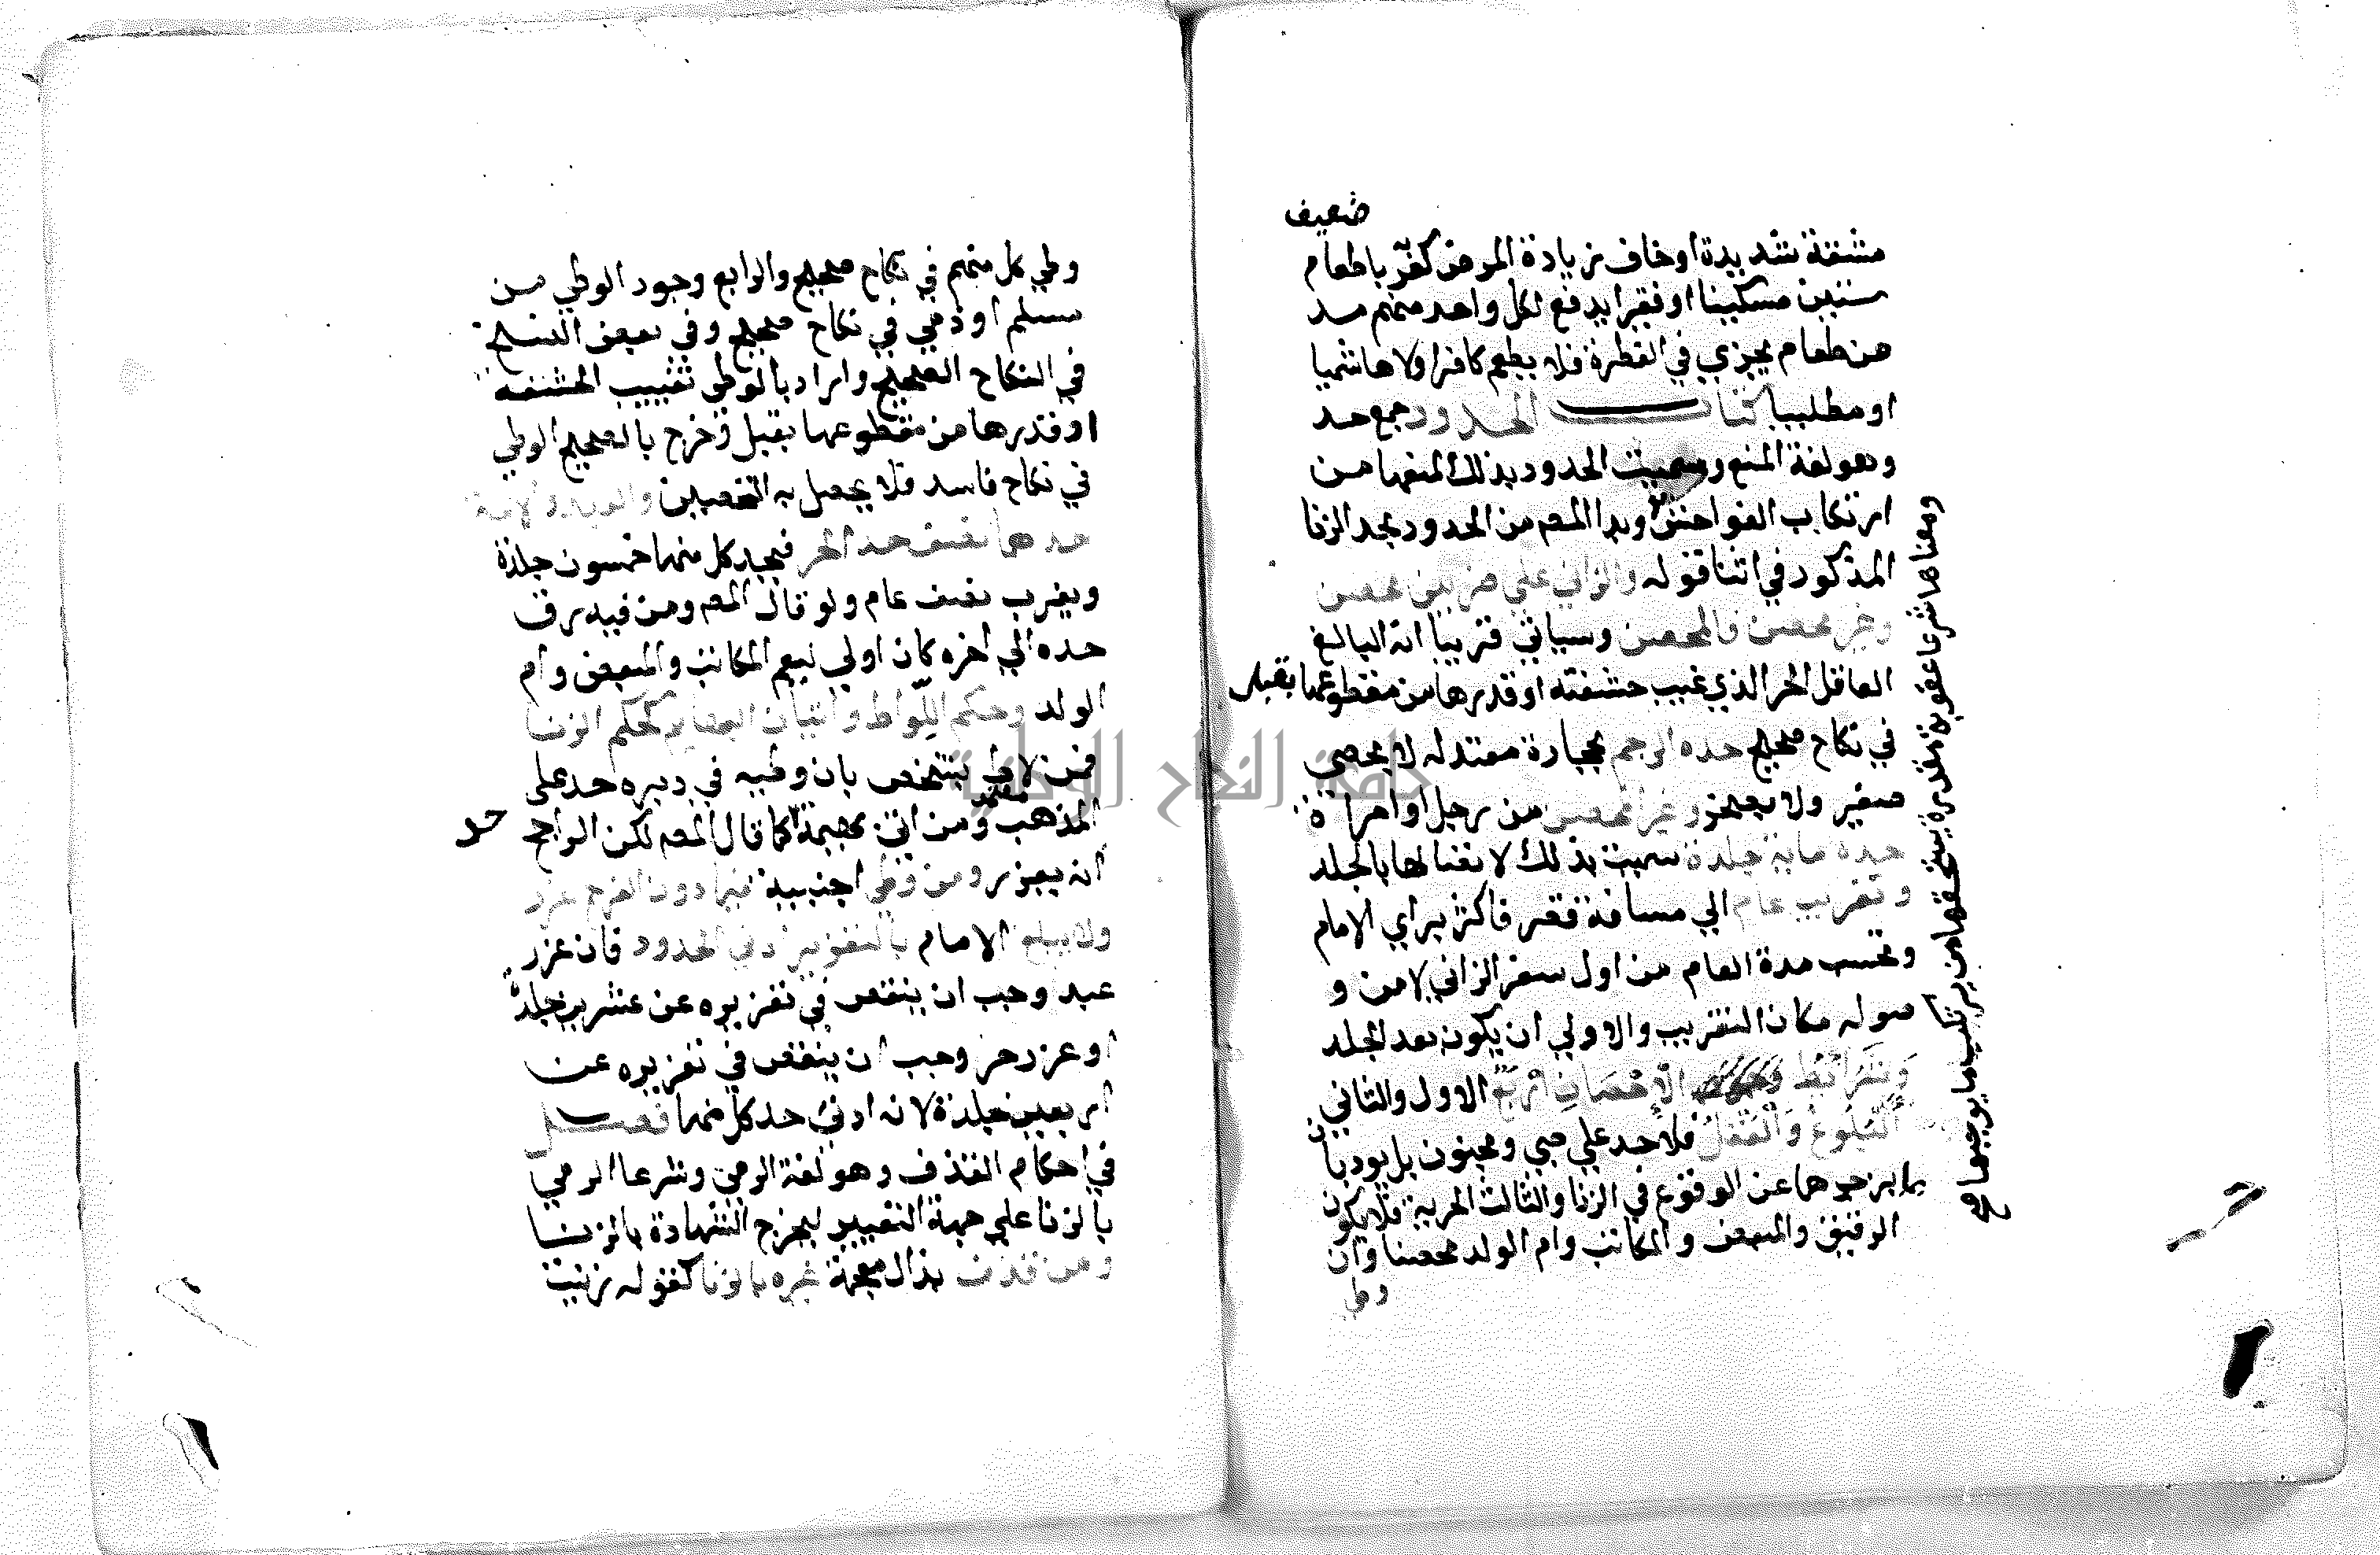 ضعيف
مشقة شديدة او خاف زيادة المرض كفر باطعام
ستين مسكينا او فقيرا يدفع لكل واحد منهم مد
من طعام يجزي في الفطرة فلا يطعم كافرا ولا هاشميا
او مطلبيا كتاب الحدود جمع حد
وهو لغة المنع وسميت الحدود بذلك لمنعها من
ارتكاب الفواحش وبدا المص من الحدود بحد الزنا
المذكور في اثنا قوله والزاني على ضربين محصن
وغير محصن فالمحصن وسياتي قريبا انه البالغ
العاقل الحر الذي غيب حشفته او قدرها من مقطوعها بقبل
في نكاح صحيح حده الرجم بحجارة معتدلة لا بحصى
صغير ولا بصخر وغير المحصن من رجل او امراة
حده ماية جلدة سميت بذلك لاتصالها بالجلد
وتغريب عام الي مسافة قصر فاكثر براي الامام
وتحسب مدة العام من اول سفر الزاني لا من و
صوله مكان التغريب والاولي ان يكون بعد الجلد
وشرائط الاحصان اربع الاول والثاني
البلوغ والعقل فلا حد علي صبي ومجنون بل يودبان
بما يزجرهما عن الوقوع في الزنا والثالث الحرية فلا يكون
الرقيق والمبعض والمكاتب وام الولد محصنا وان
وطي
ومعناها شرعا عقوبة مقدرة يستحقها من يرتكب ما يوجبها
وطي كل منهم في نكاح صحيح والرابع وجود الوطي من
مسلم او ذمي في نكاح صحيح وفي بعض النسخ
في النكاح الصحيح واراد بالوطي تغييب الحشفه
او قدرها من مقطوعها بقبل وخرج بالصحيح الوطي
في نكاح فاسد فلا يحصل به التحصين والعبد والامة
حدهما نصف حد الحر فيجلد كل منهما خمسون جلدة
ويغرب نصف عام ولو قال المص ومن فيه رق
حده الي اخره كان اولي ليعم المكاتب والمبعض وام
الولد وحكم اللواط واتيان البهايم كحكم الزنا
فمن لاط بشخص بان وطيه في دبره حد على
المذهب ومن اتى بهيمة حد كما قال المص لكن الراجح
ان يعزر ومن وطي اجنبية فيما دون الفرج عزر
ولا يبلغ الامام بالتعزير ادني الحدود فان عزر
عبد وجب ان ينقص في تعزيره عن عشرين جلدة
او عزر حر وجب ان ينقص في تعزيره عن
اربعين جلدة لانه ادنى حد كل منهما فصل
في احكام القذف وهو لغة الرمي وشرعا الرمي
بالزنا علي جهة التعيير ليخرج الشهادة بالزنا
ومن قذف غيره بالزنا كقوله زنيت